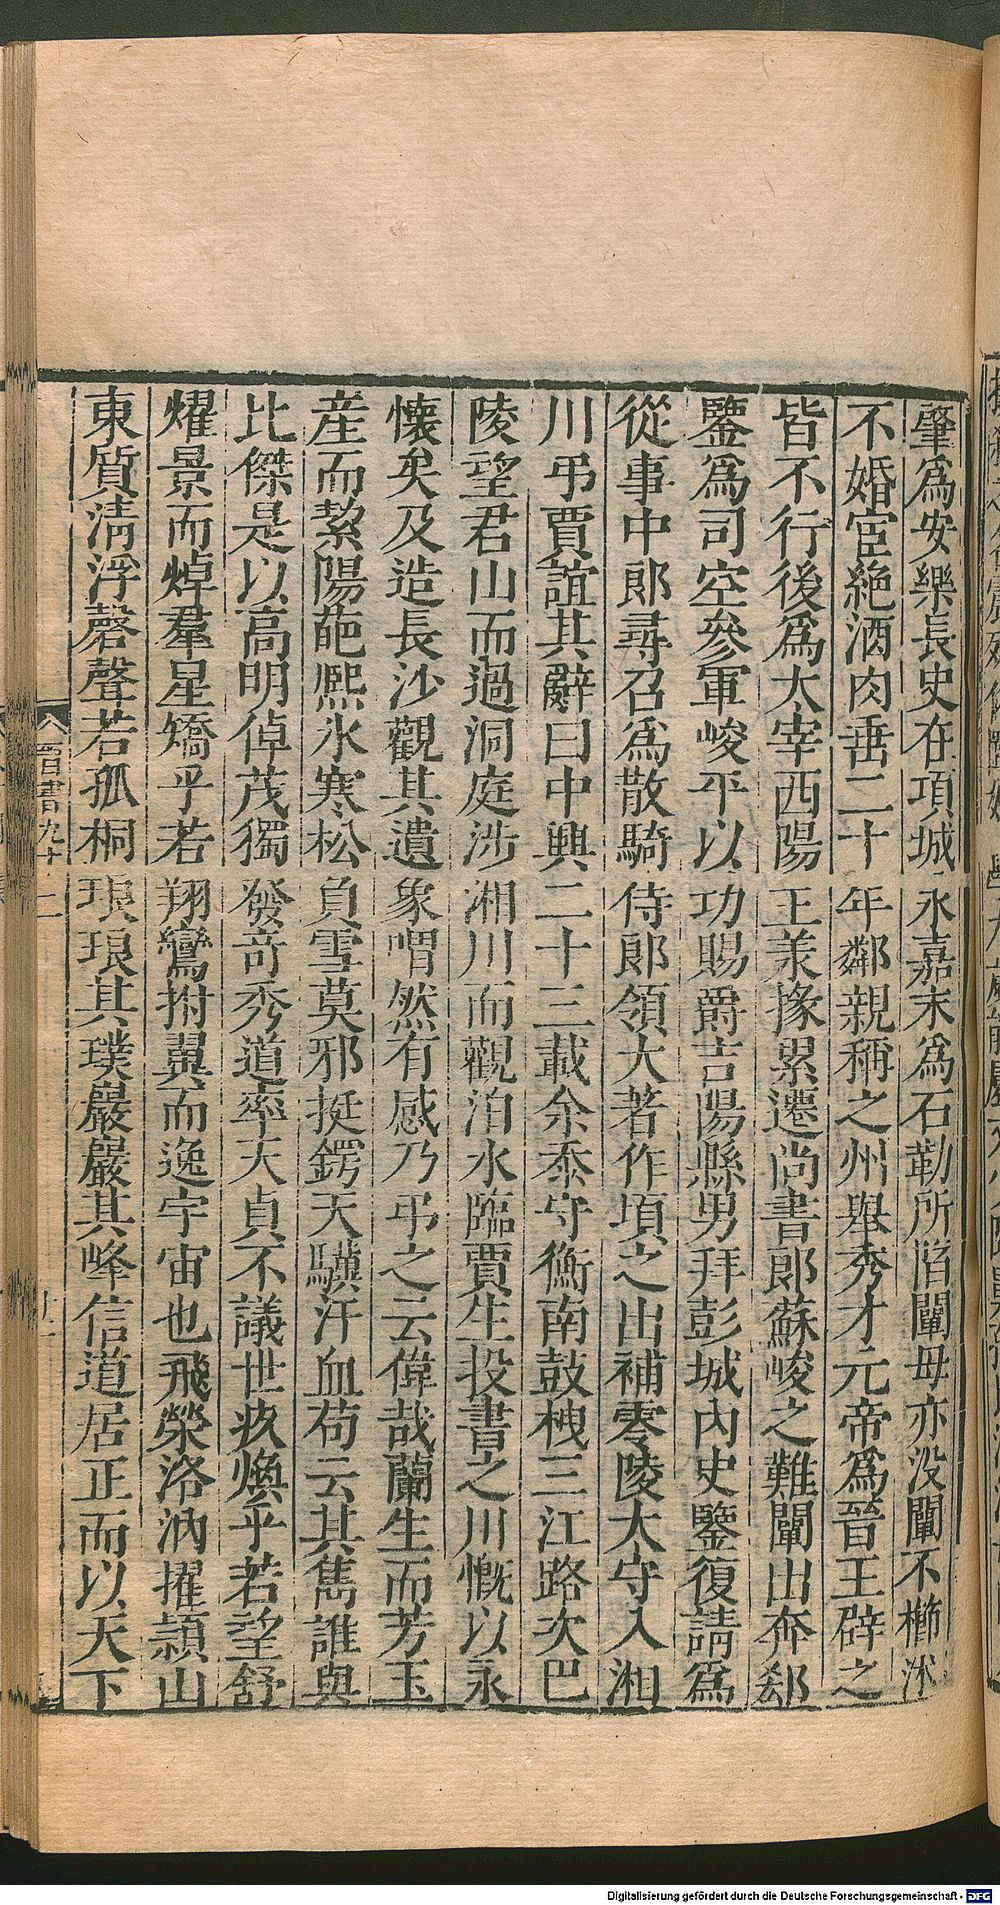 肇爲安樂長史在項城永嘉末爲石勒所滔闡母亦没闡不櫛沐
不婚宦絶酒肉垂二十年鄰親稱之州舉秀才元帝爲晉王辟之
皆不行後爲太宰西陽王羕掾累遷尚書郎蘇峻之難闡出奔郄
鑒爲司空參軍峻平以功賜爵吉陽縣男拜彭城内史鑒復請爲
從事中郎尋召爲散騎侍郎領大著作頃之出補零陵太守入湘
川弔賈誼其辭曰中興二十三載余忝守衡南鼓枻三江路次巴
陵望君山而過洞庭涉湘川而觀汨水臨賈生投書之川慨以永
懐矣及造長沙觀其遺象喟然有感乃弔之云偉哉蘭生而芳玉
産而絜陽葩熙氷寒松負雪莫邪挺鍔天驥汗血苟云其雋誰與
比傑是以高明倬茂獨發奇秀道率天真不議世疚煥乎若望舒
燿景而焯羣星矯乎若翔鸞拊翼而逸宇宙也飛榮洛汭擢頴山
東質清浮磬聲若孤桐琅琅其璞巖巖其峰信道居正而以天下
晉書九十二
Digitalisierung gefördert durch die Deutsche Forschungsgemeinschaft - DFG